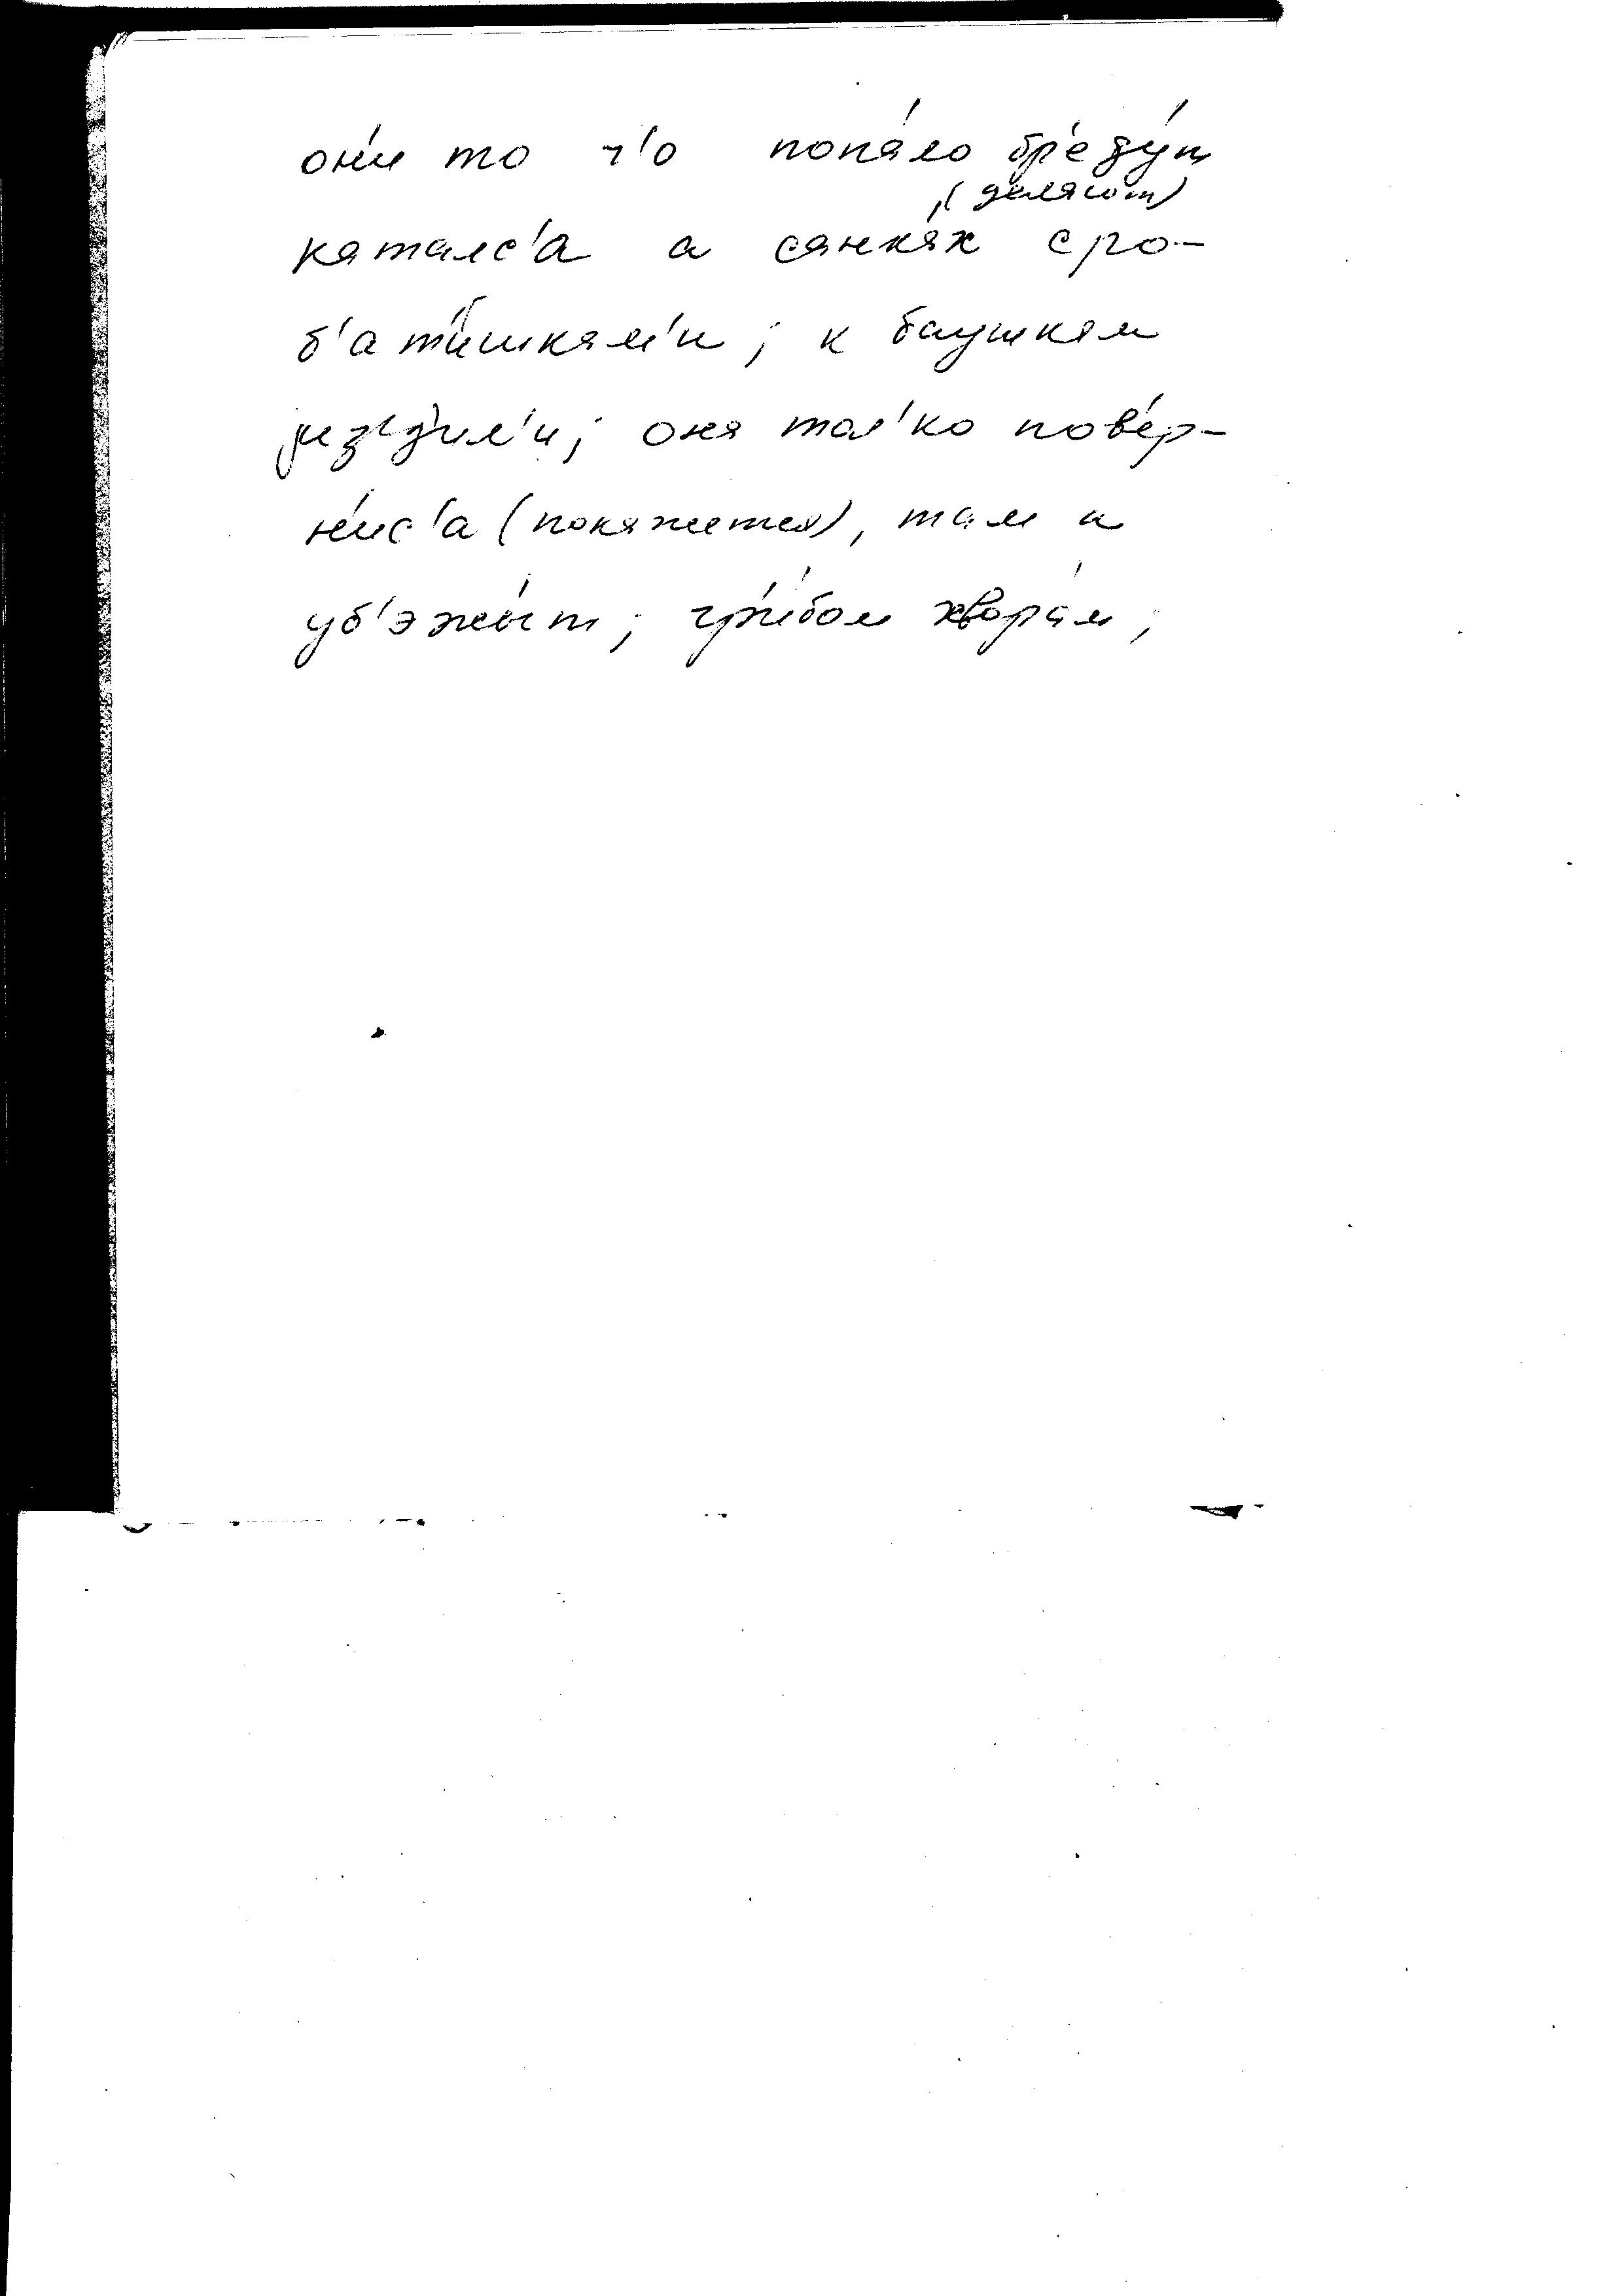 он'и то ч'о попа́ло бр'еду́т
(делают)
каталс'а а санках с ро-
б'ат'ишкам'и; к баушкам
jез'д'ил'и; она тол'ко пов'ер-
н'ис'а (покажется), там и
уб'эжы́т; гр'ибом хвора́м;